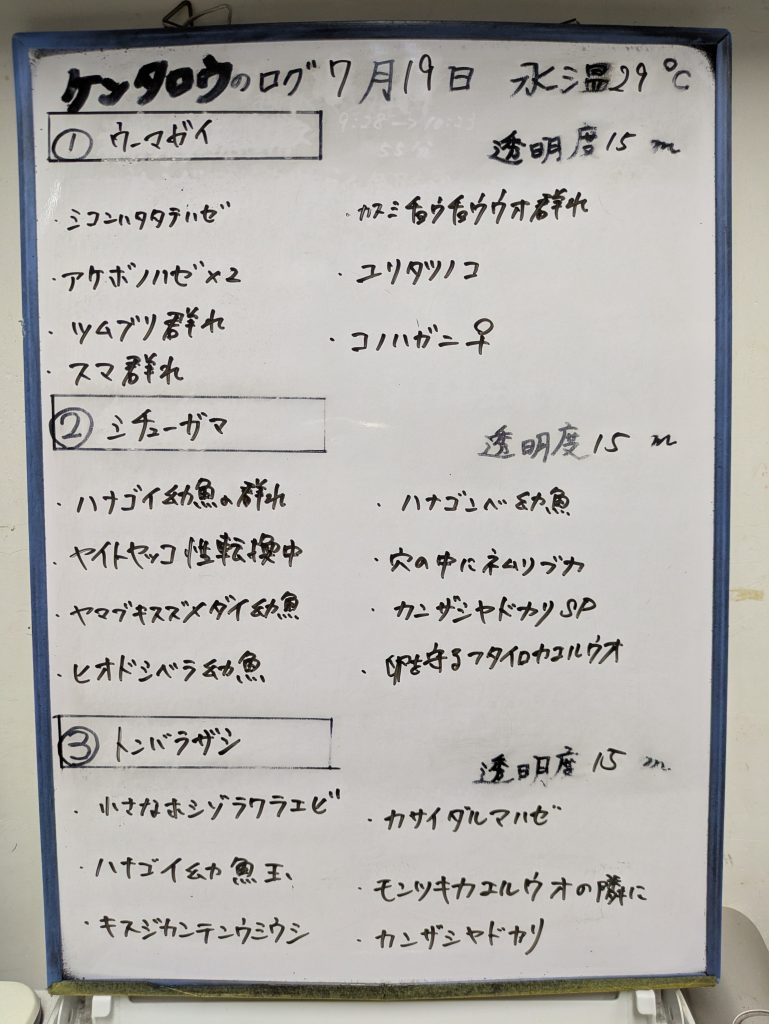 ケンタロウのログ 7月19日 水温29℃
① ウーマガイ
透明度15m
・シコンハタタテハゼ
・カスミチョウチョウウオ群れ
・アケボノハゼ×2
・ユリタツノコ
・ツムブリ群れ
・コノハガニ♀
・スマ群れ
② シチューガマ
透明度15m
・ハナゴイ幼魚の群れ
・ハナゴンベ幼魚
・ヤイトヤッコ性転換中
・穴の中にネムリブカ
・ヤマブキスズメダイ幼魚
・カンザシヤドカリSP
・ヒオドシベラ幼魚
・卵を守るフタイロカエルウオ
③ トンバラザシ
透明度15m
・小さなホシゾラワラエビ
・カサイダルマハゼ
・ハナゴイ幼魚玉
・モンツキカエルウオの隣に
・キスジカンテンウミウシ
・カンザシヤドカリ